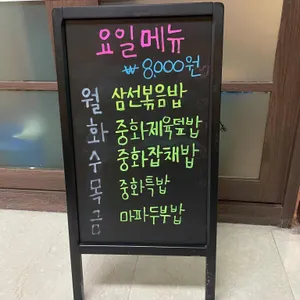 요일메뉴
₩8,000원
월 삼선볶음밥
화 중화제육덮밥
수 중화잡채밥
목 중화특밥
금 마파두부밥